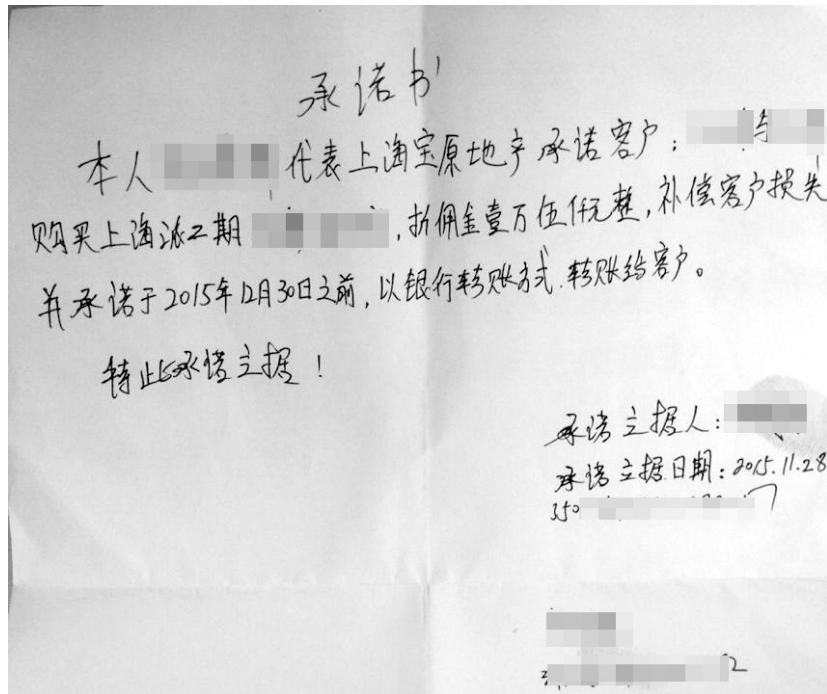 承诺书
本人 代表上海宝原地产承诺客户:
购买上海派二期 ,折佣金壹万伍仟元整,补偿客户损失
并承诺于2015年12月30日之前,以银行转账方式.转账给客户。
特此承诺立据!
承诺立据人:
承诺立据日期:2015.11.28
350